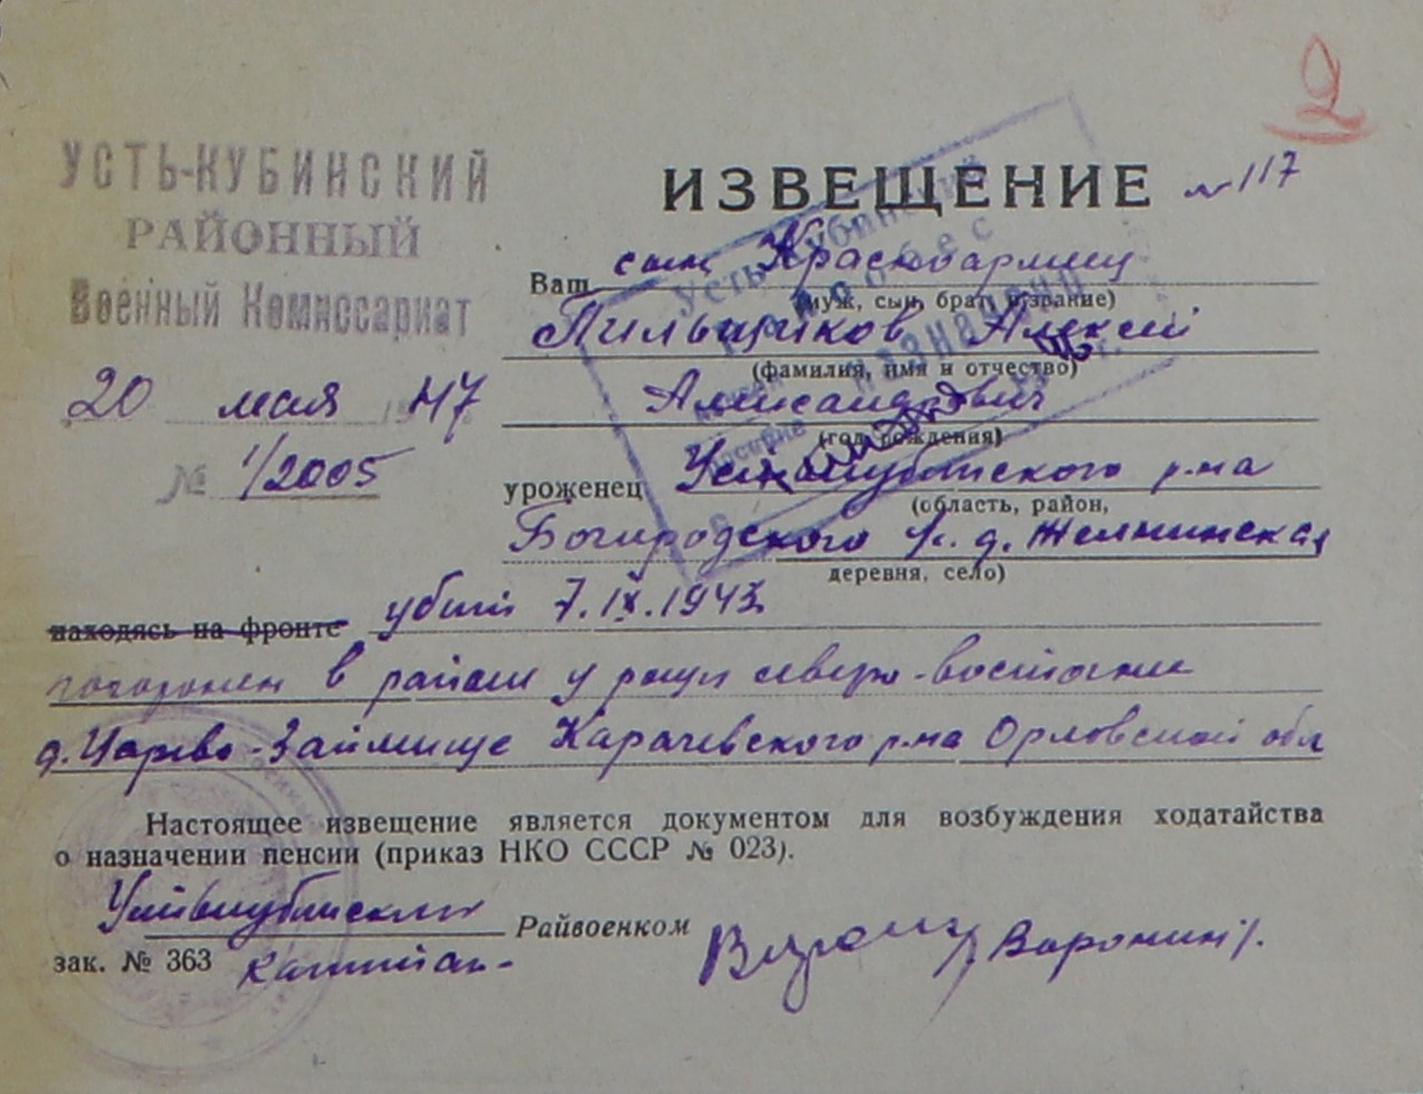 2
УСТЬ-КУБИНСКИЙ
РАЙОННЫЙ
Военный Комиссариат
20 мая 1947
№ 1/2005
ИЗВЕЩЕНИЕ №117
Ваш сын Красноармеец
(муж, сын, брат, звание)
Пильщиков Алексей
(фамилия, имя и отчество)
Александрович
(год рождения)
уроженец Усть-Кубинского р-на
(область, район,
Богородского с. д.
деревня, село)
находясь на фронте убит 7.IX.1943
похоронен в районе у рощи северо-восточнее
д. Царево-Займище Карачевского р-на Орловской обл
Настоящее извещение является документом для возбуждения ходатайства
о назначении пенсии (приказ НКО СССР № 023).
Усть-Кубинский Райвоенком
зак. № 363 капитан- /Воронин/.
Усть-Кубинский
назначено